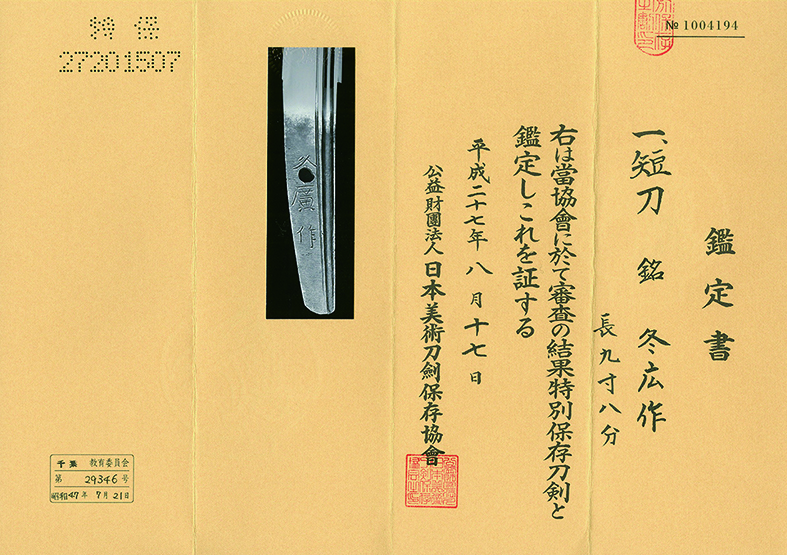 № 1004194
鑑定書
一、短刀 銘 冬広作
長九寸八分
右は當協會に於て審査の結果特別保存刀剣と
鑑定しこれを証する
平成二十七年八月十七日
公益財團法人 日本美術刀劍保存協會
冬廣作
特保
27201507
千葉 教育委員会
第 29346 号
昭和47年7月21日